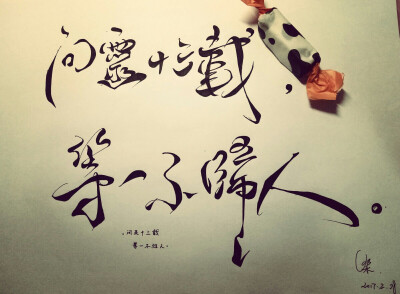 问靈十三載,
等一不歸人。
问灵十三载
等一不归人.
2017.2.